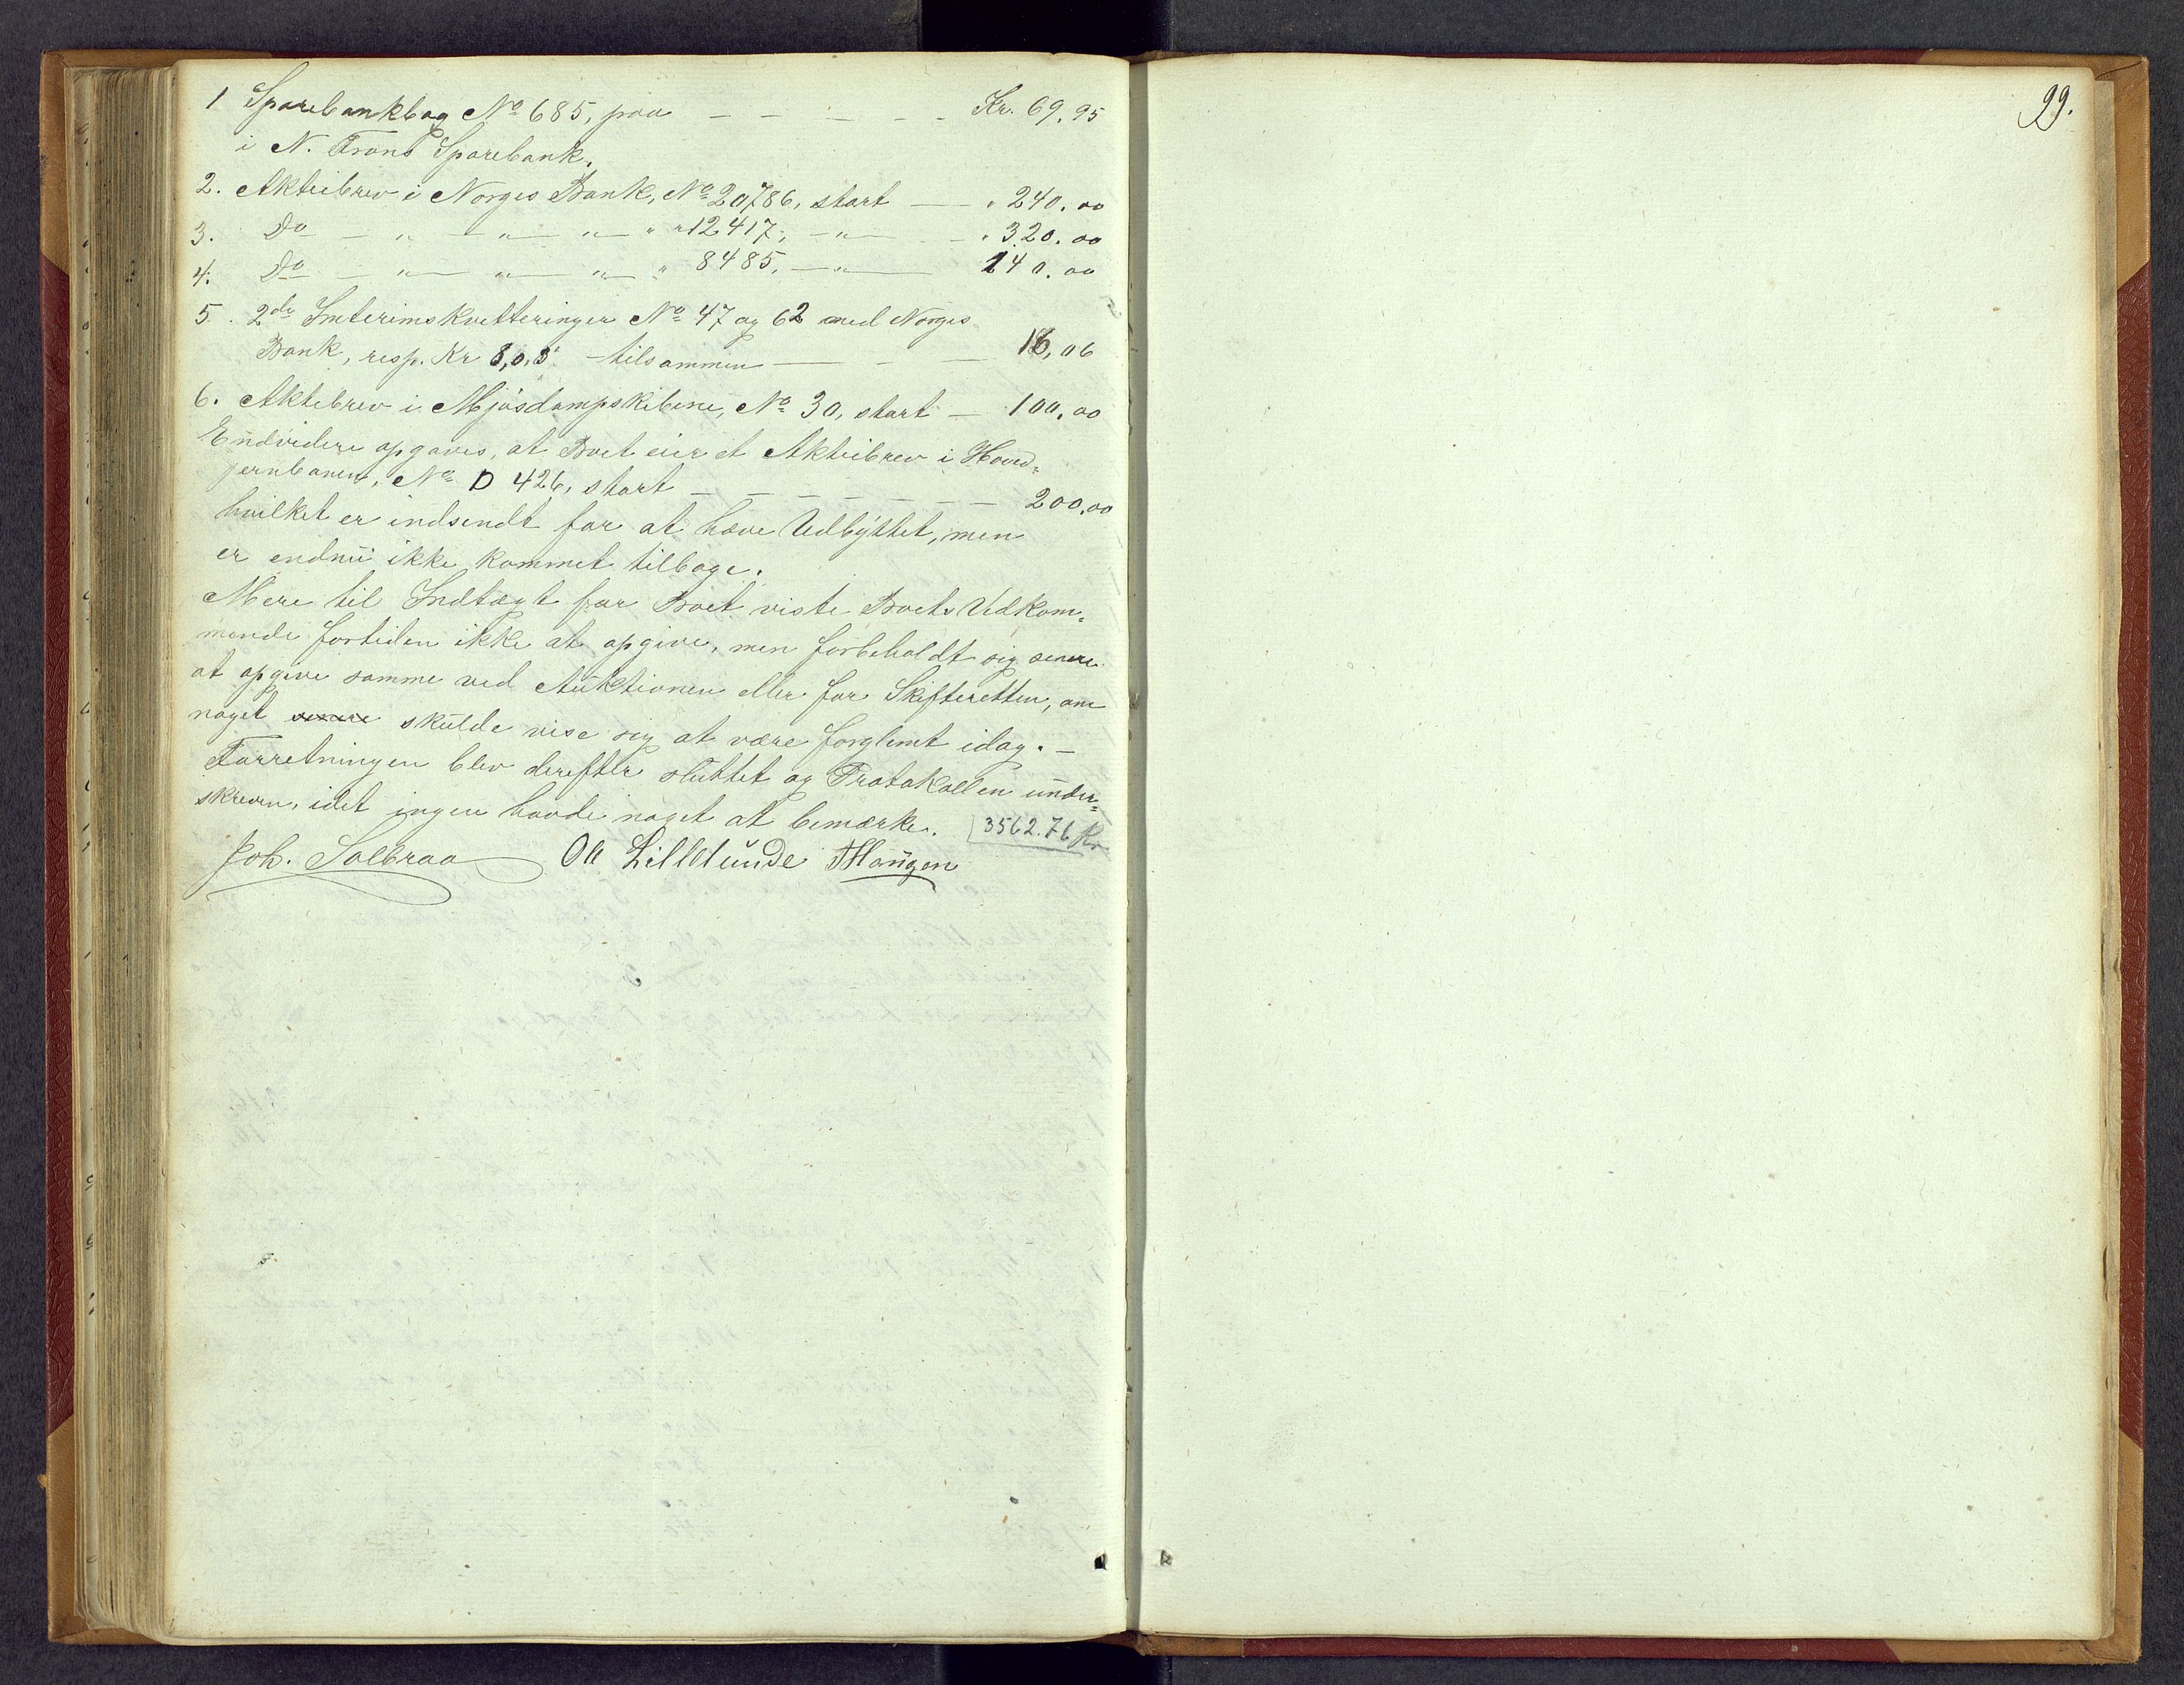 1 Sparebankbog No 685, paa — — — — — Kr. 69.95
i N. Frons Sparebank.
2. Aktiebrev i Norges Bank, No 20786, stort — " 240.00
3. Do — " — " — " — " " 12417, — " — — " 320.00
4. Do — " — " — " — " 8485, — " — 240.00
5. 2de Interimskvitteringer No 47 og 62 med Norges
Bank, resp. Kr 8,0,8 tilsammen — — 16,06
6. Aktiebrev i Mjøsdampskibene, No 30, stort — 100,00
Endvidere opgaves, at Boet eier et Aktiebrev i Hoved-
jernbanen, No D 426, stort — — — — — — — 200,00
hvilket er indsendt for at hæve Udbyttet, men
er endnu ikke kommet tilbage.
Mere til Indtægt for Boet viste Boets Vedkom-
mende fortiden ikke at opgive, men forbeholdt sig senere
at opgive samme ved Auktionen eller for Skifteretten, om
noget senere skulde vise sig at være forglemt idag. —
Forretningen blev derefter sluttet og Protokollen under-
skreven, idet ingen havde noget at bemærke. 3562.76 Kr
Joh. Solbraa Ole Lillelunde T Haugen
99.